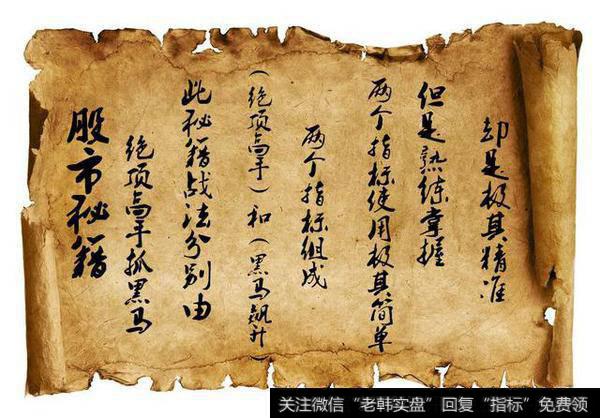 股市秘籍
绝顶高手抓黑马
此秘籍战法分别由
（绝顶高手）和（黑马飙升）
两个指标组成
两个指标使用极其简单
但是熟练掌握
却是极其精准
关注微信“老韩实盘”回复“指标”免费领